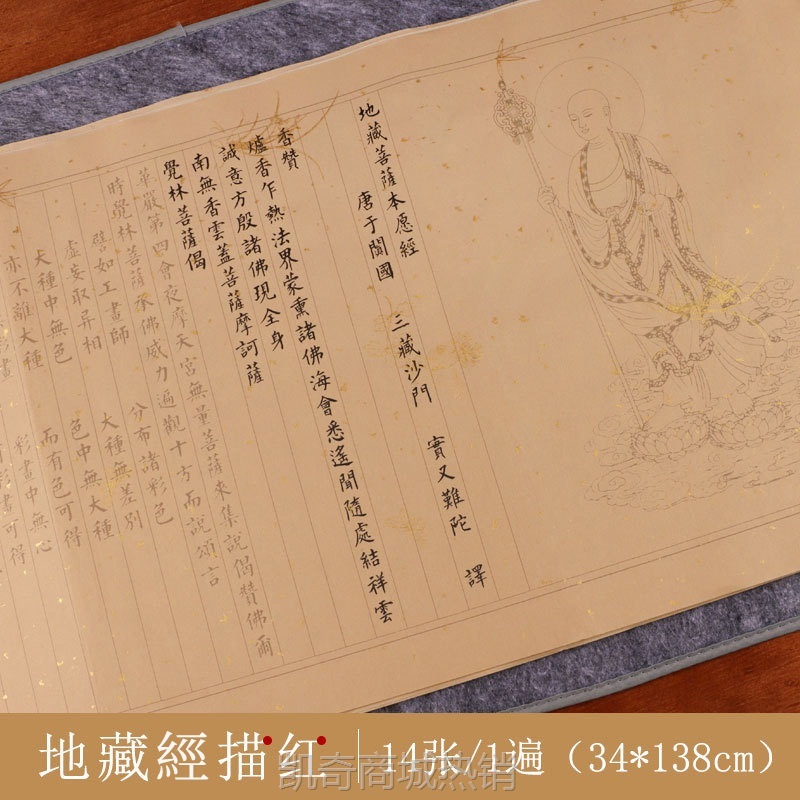 地藏菩薩本愿經
唐于闐國 三藏沙門 實叉難陀 譯
香贊
爐香乍熱法界蒙熏諸佛海會悉遙聞隨處結祥雲
誠意方殷諸佛現全身
南無香雲蓋菩薩摩訶薩
覺林菩薩偈
華嚴第四會夜摩天宮無量菩薩來集說偈贊佛爾
時覺林菩薩承佛威力遍觀十方而說頌言
譬如工畫師 分布諸彩色
虛妄取异相 大種無差別
大種中無色 色中無大種
亦不離大種 而有色可得
彩畫 彩畫中無心
有彩畫可得
地藏經描红 14张/1遍（34*138cm）
凯奇商城热销